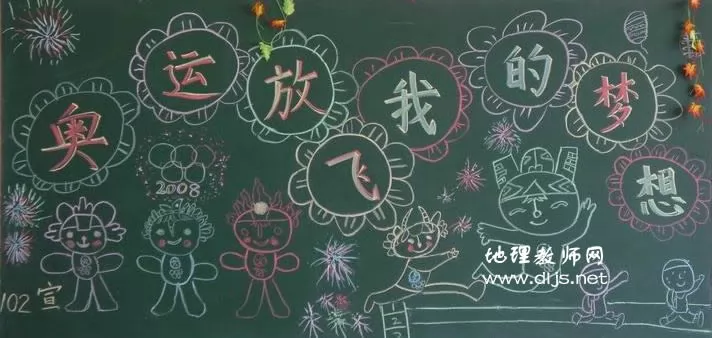 奥运放飞我的梦想
2008
地理教师网
www.dljs.net
102宣